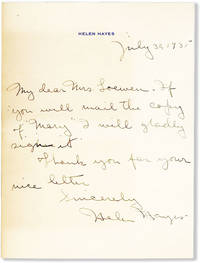 HELEN HAYES
July 30, 1935
My dear Mrs. Loewen. If
you will mail the copy
of "Mary" I will gladly
sign it
Thank you for your
nice letter
Sincerely
Helen Hayes